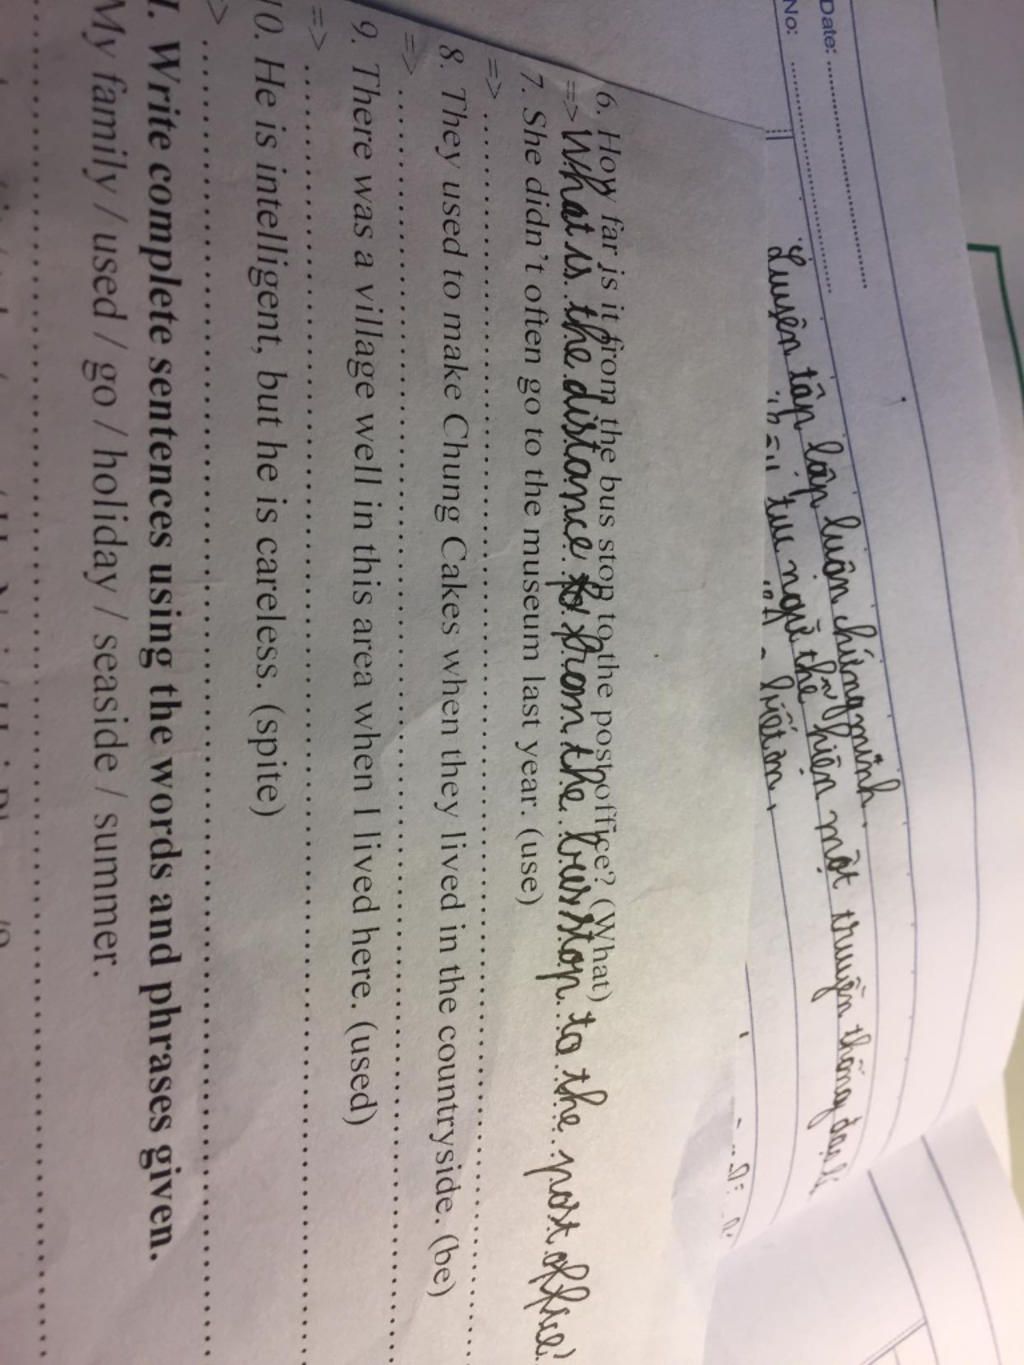 Date:
No:
Luyện tập lập luận chứng minh
tục ngữ thể hiện một truyền thống đạo lí
6. How far is it from the bus stop to the post office? (What)
=> What is the distance from the bus stop to the post office?
7. She didn't often go to the museum last year. (use)
=>
8. They used to make Chung Cakes when they lived in the countryside. (be)
=>
9. There was a village well in this area when I lived here. (used)
=>
10. He is intelligent, but he is careless. (spite)
=>
I. Write complete sentences using the words and phrases given.
My family / used / go / holiday / seaside / summer.